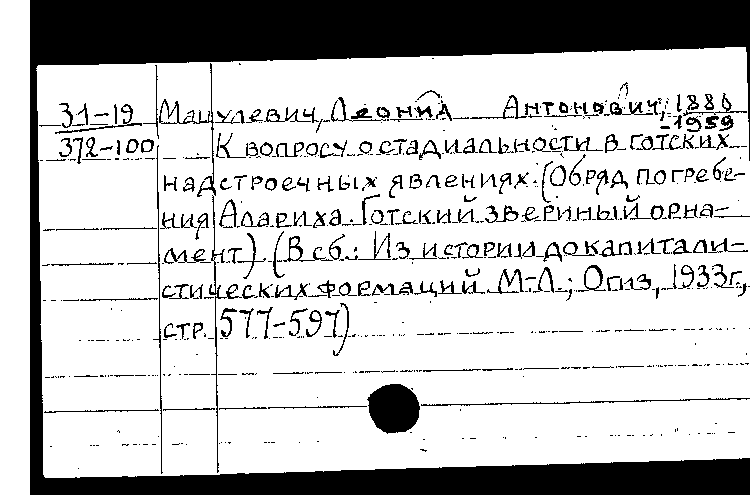 31-19 Мацулевич, Леонид Антонович, 1886
-1959
372-100 К вопросу о стадиальности в готских
надстроечных явлениях. (Обряд погребе-
ния Алариха. Готский звериный орна-
мент). (В сб.: Из истории докапитали-
стических формаций. М-Л.; Огиз, 1933г.,
стр. 577-597).